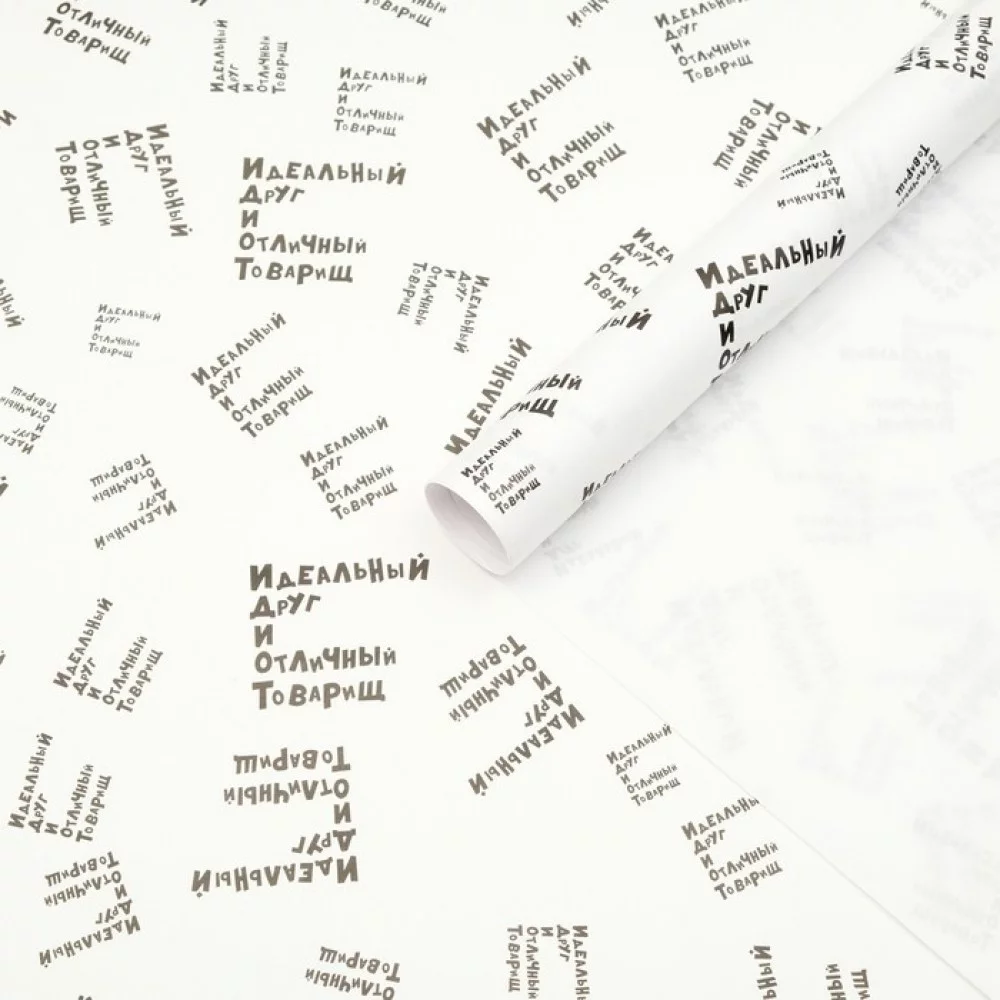 Отличный
Товарищ
Идеальный
Друг
И
Отличный
Товарищ
Идеальный
Друг
И
Отличный
Товарищ
Идеальный
Друг
И
Отличный
Товарищ
Идеальный
Друг
И
Отличный
Товарищ
Идеальный
Друг
И
Отличный
Товарищ
Идеальный
Друг
И
Отличный
Товарищ
Идеальный
Друг
И
Отличный
Товарищ
Идеальный
Друг
И
Отличный
Товарищ
Идеальный
Друг
И
Отличный
Товарищ
Идеальный
Друг
И
Отличный
Товарищ
Идеальный
Друг
И
Отличный
Товарищ
Идеальный
Друг
И
Идеальный
Друг
И
Отличный
Товарищ
Идеальный
Друг
И
Отличный
Товарищ
Идеальный
Друг
И
Отличный
Товарищ
Идеальный
Друг
И
Отличный
Товарищ
Идеальный
Друг
И
Отличный
Товарищ
Идеальный
Друг
И
Отличный
Товарищ
Идеальный
Друг
И
Отличный
Товарищ
Идеальный
Друг
И
Отличный
Товарищ
Идеальный
Друг
И
Отличный
Товарищ
Идеальный
Друг
И
Отличный
Товарищ
Отличный
Товарищ
Идеальный
Друг
И
Отличный
Товарищ